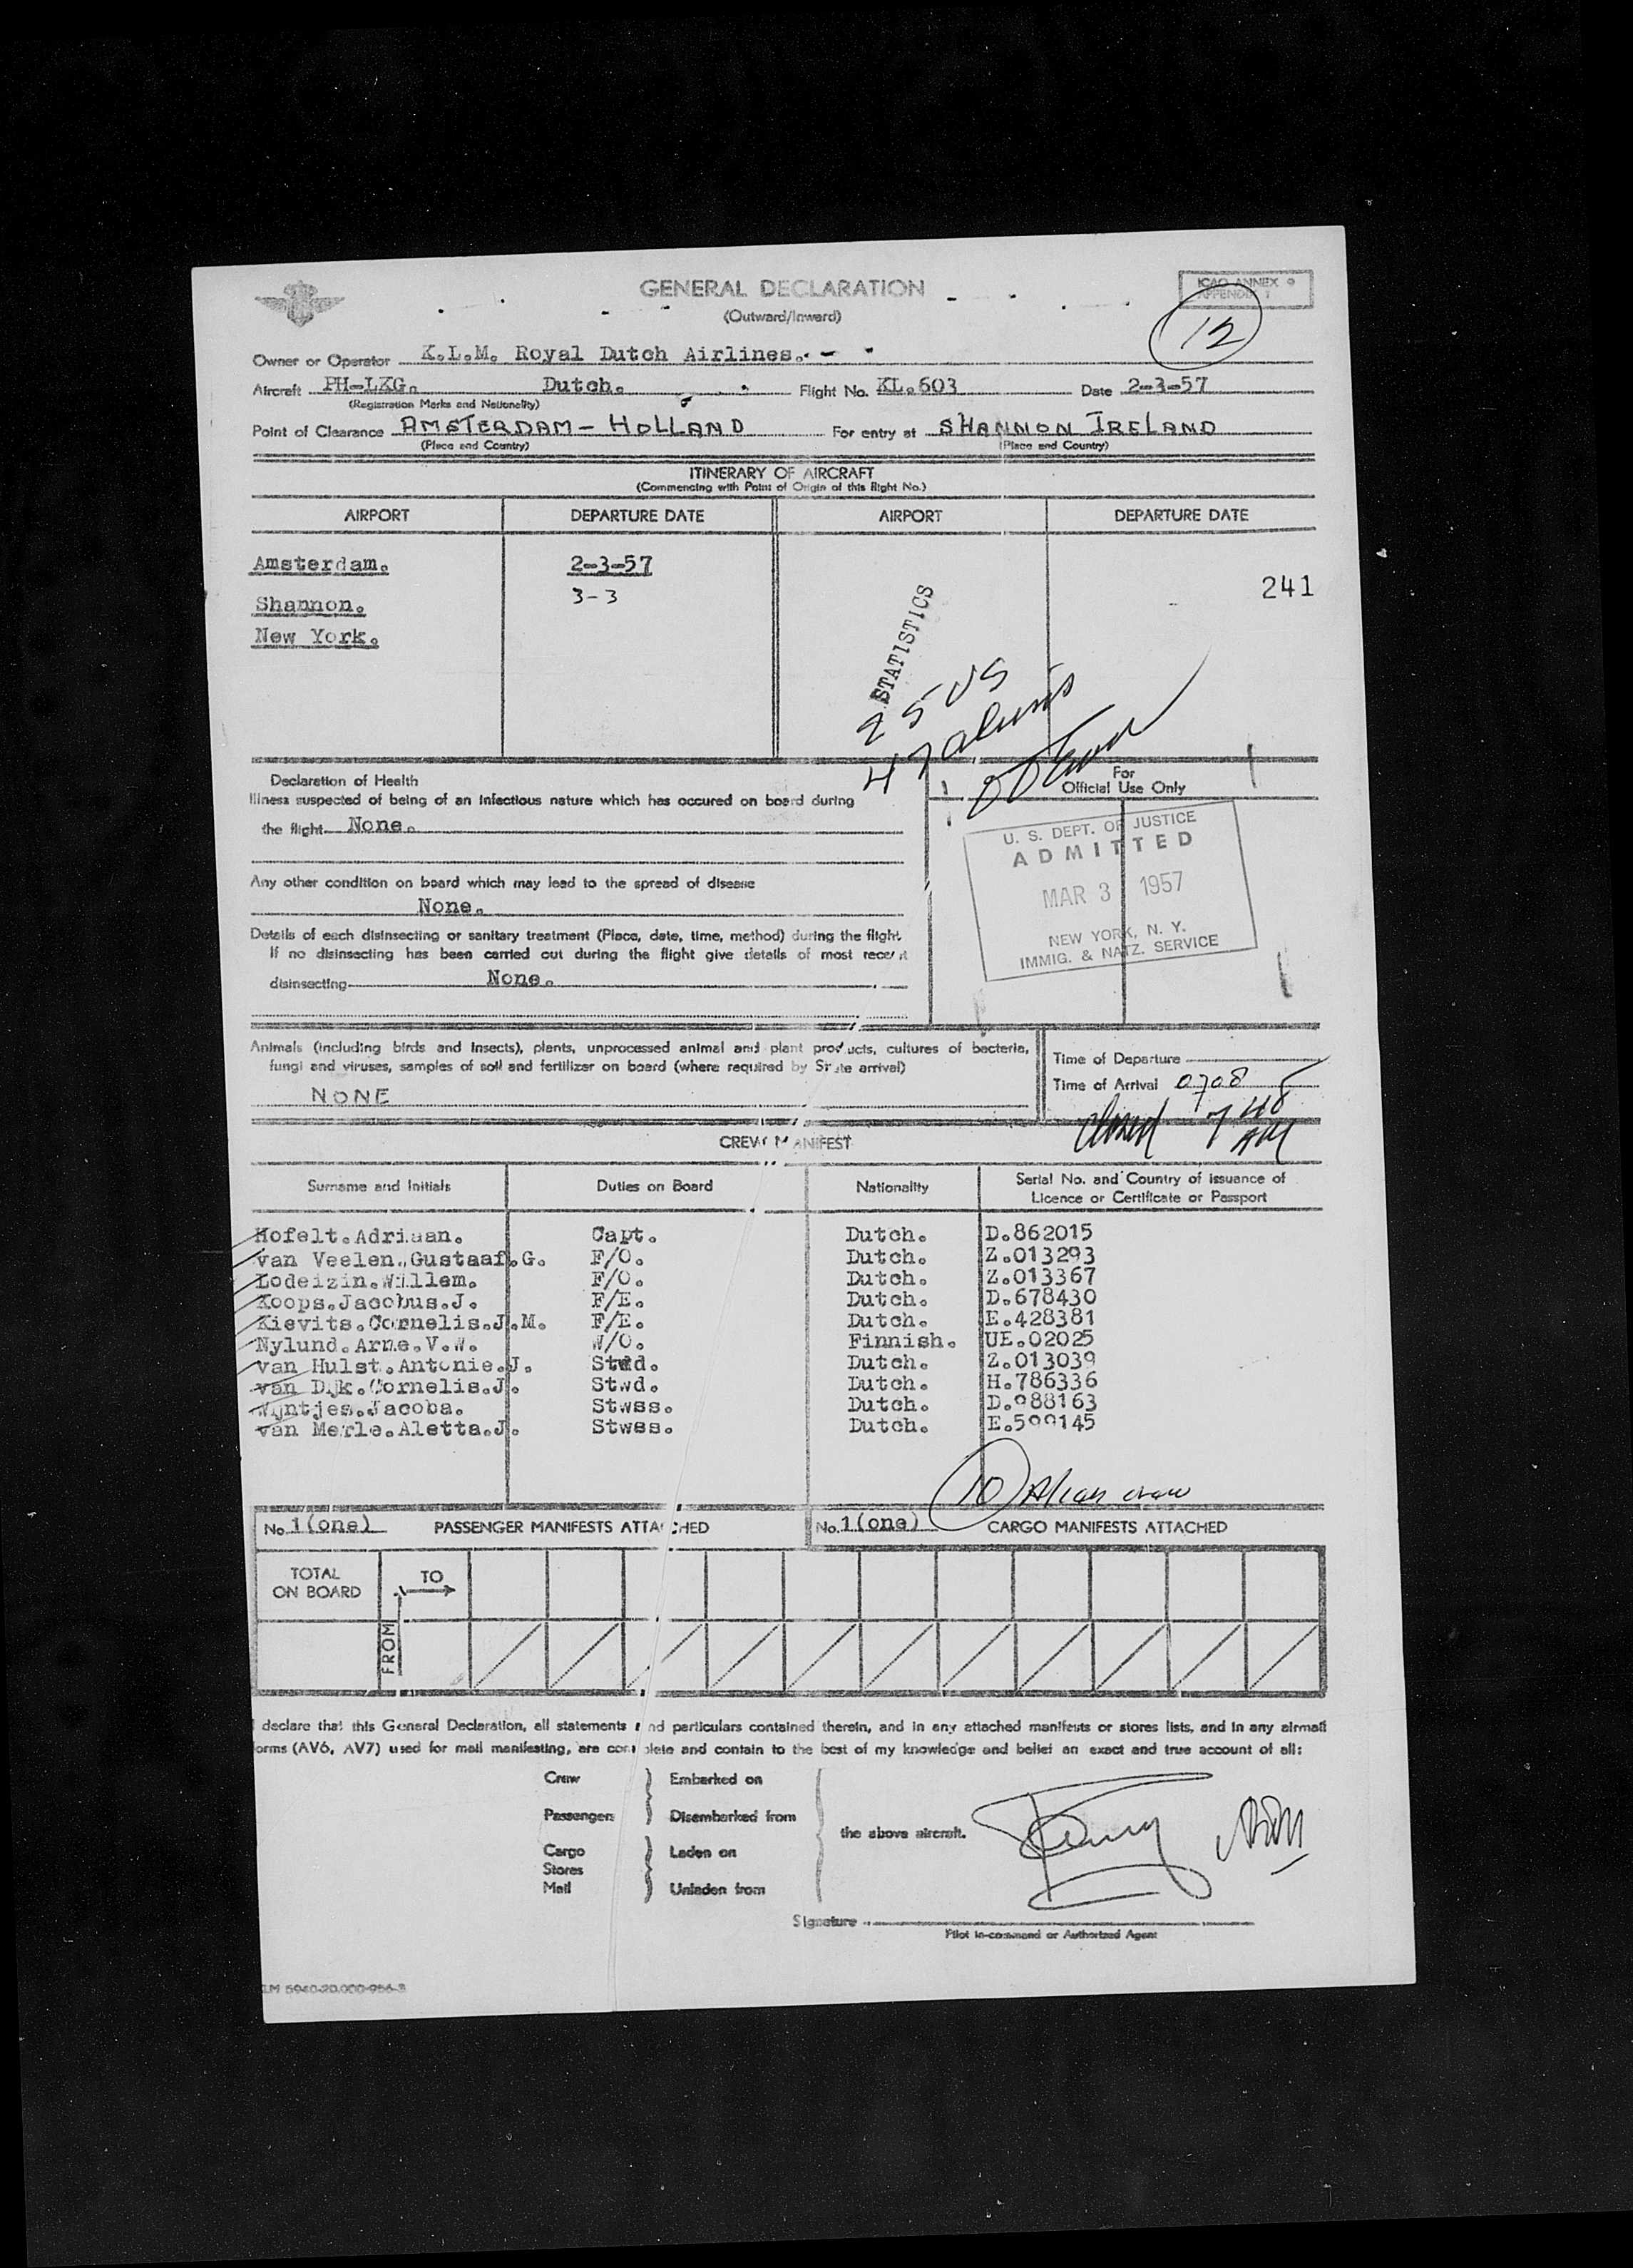 GENERAL DECLARATION
(Outward/Inward)
ICAO ANNEX 9
APPENDIX 1
12
Owner or Operator K.L.M. Royal Dutch Airlines.
Aircraft PH-LKG. Dutch. Flight No. KL.603 Date 2-3-57
(Registration Marks and Nationality)
Point of Clearance AMSTERDAM - HOLLAND For entry at SHANNON IRELAND
(Place and Country) (Place and Country)
ITINERARY OF AIRCRAFT
(Commencing with Point of Origin of this flight No.)
AIRPORT DEPARTURE DATE AIRPORT DEPARTURE DATE
Amsterdam. 2-3-57
Shannon. 3-3
New York.
241
STATISTICS
25 US
47 aliens
Declaration of Health
Illness suspected of being of an infectious nature which has occured on board during
the flight None.
For
Official Use Only
U. S. DEPT. OF JUSTICE
ADMITTED
MAR 3 1957
NEW YORK, N. Y.
IMMIG. & NATZ. SERVICE
Any other condition on board which may lead to the spread of disease
None.
Details of each disinsecting or sanitary treatment (Place, date, time, method) during the flight.
If no disinsecting has been carried out during the flight give details of most recent
disinsecting None.
Animals (including birds and insects), plants, unprocessed animal and plant products, cultures of bacteria,
fungi and viruses, samples of soil and fertilizer on board (where required by State arrival)
NONE
Time of Departure
Time of Arrival 0708
7 48
AM
CREW MANIFEST
Surname and Initials Duties on Board Nationality Serial No. and Country of Issuance of
Licence or Certificate or Passport
Hofelt.Adriaan. Capt. Dutch. D.862015
van Veelen.Gustaaf.G. F/O. Dutch. Z.013293
Lodeizin.Willem. F/O. Dutch. Z.013367
Koops.Jacobus.J. F/E. Dutch. D.678430
Kievits.Cornelis.J.M. F/E. Dutch. E.428381
Nylund.Arne.V.W. W/O. Finnish. UE.02025
van Hulst.Antonie.J. Stwd. Dutch. Z.013039
van Dijk.Cornelis.J. Stwd. Dutch. H.786336
Wijntjes.Jacoba. Stwss. Dutch. D.988163
van Merle.Aletta.J. Stwss. Dutch. E.599145
10 Alien crew
No. 1(one) PASSENGER MANIFESTS ATTACHED No. 1(one) CARGO MANIFESTS ATTACHED
TOTAL
ON BOARD
TO
FROM
I declare that this General Declaration, all statements and particulars contained therein, and in any attached manifests or stores lists, and in any airmail
forms (AV6, AV7) used for mail manifesting, are complete and contain to the best of my knowledge and belief an exact and true account of all:
Crew Embarked on
Passengers Disembarked from
the above aircraft.
Cargo Laden on
Stores
Mail Unladen from
Signature
Pilot in-command or Authorized Agent